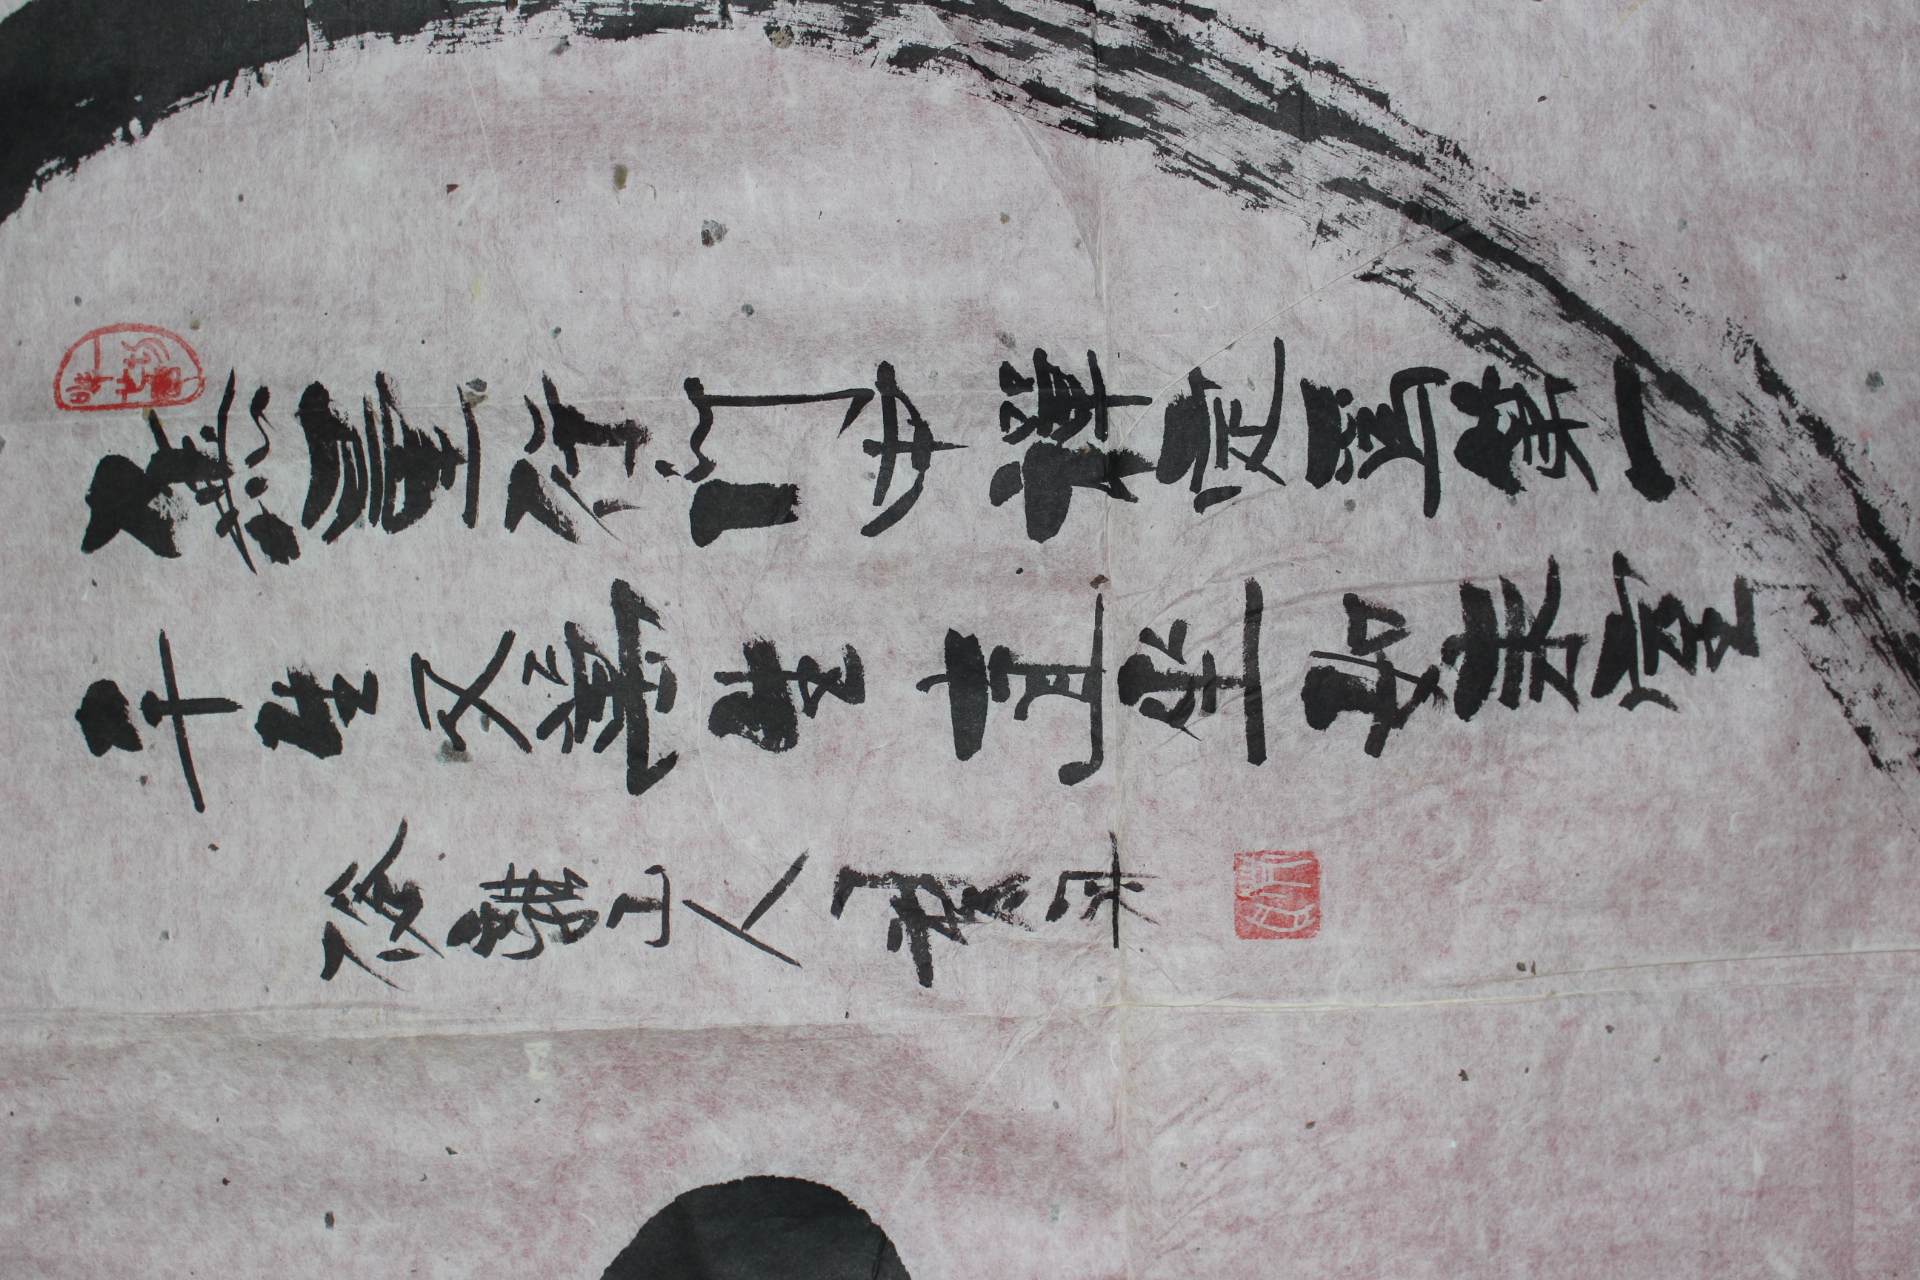 無量行門中禪定爲第一
千生又萬生直坐如來室
俗離山人